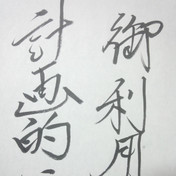 御利用
計画的